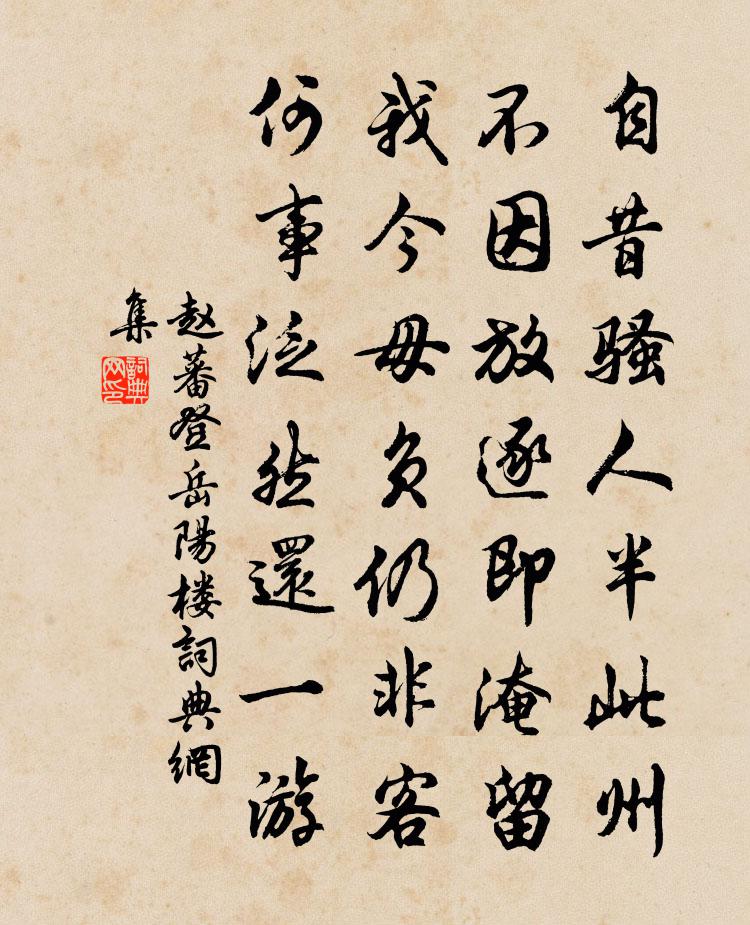 自昔骚人半此州
不因放逐即淹留
我今毋负仍非客
何事泛然還一游
赵蕃登岳陽楼詞典網
集
詞典
网印